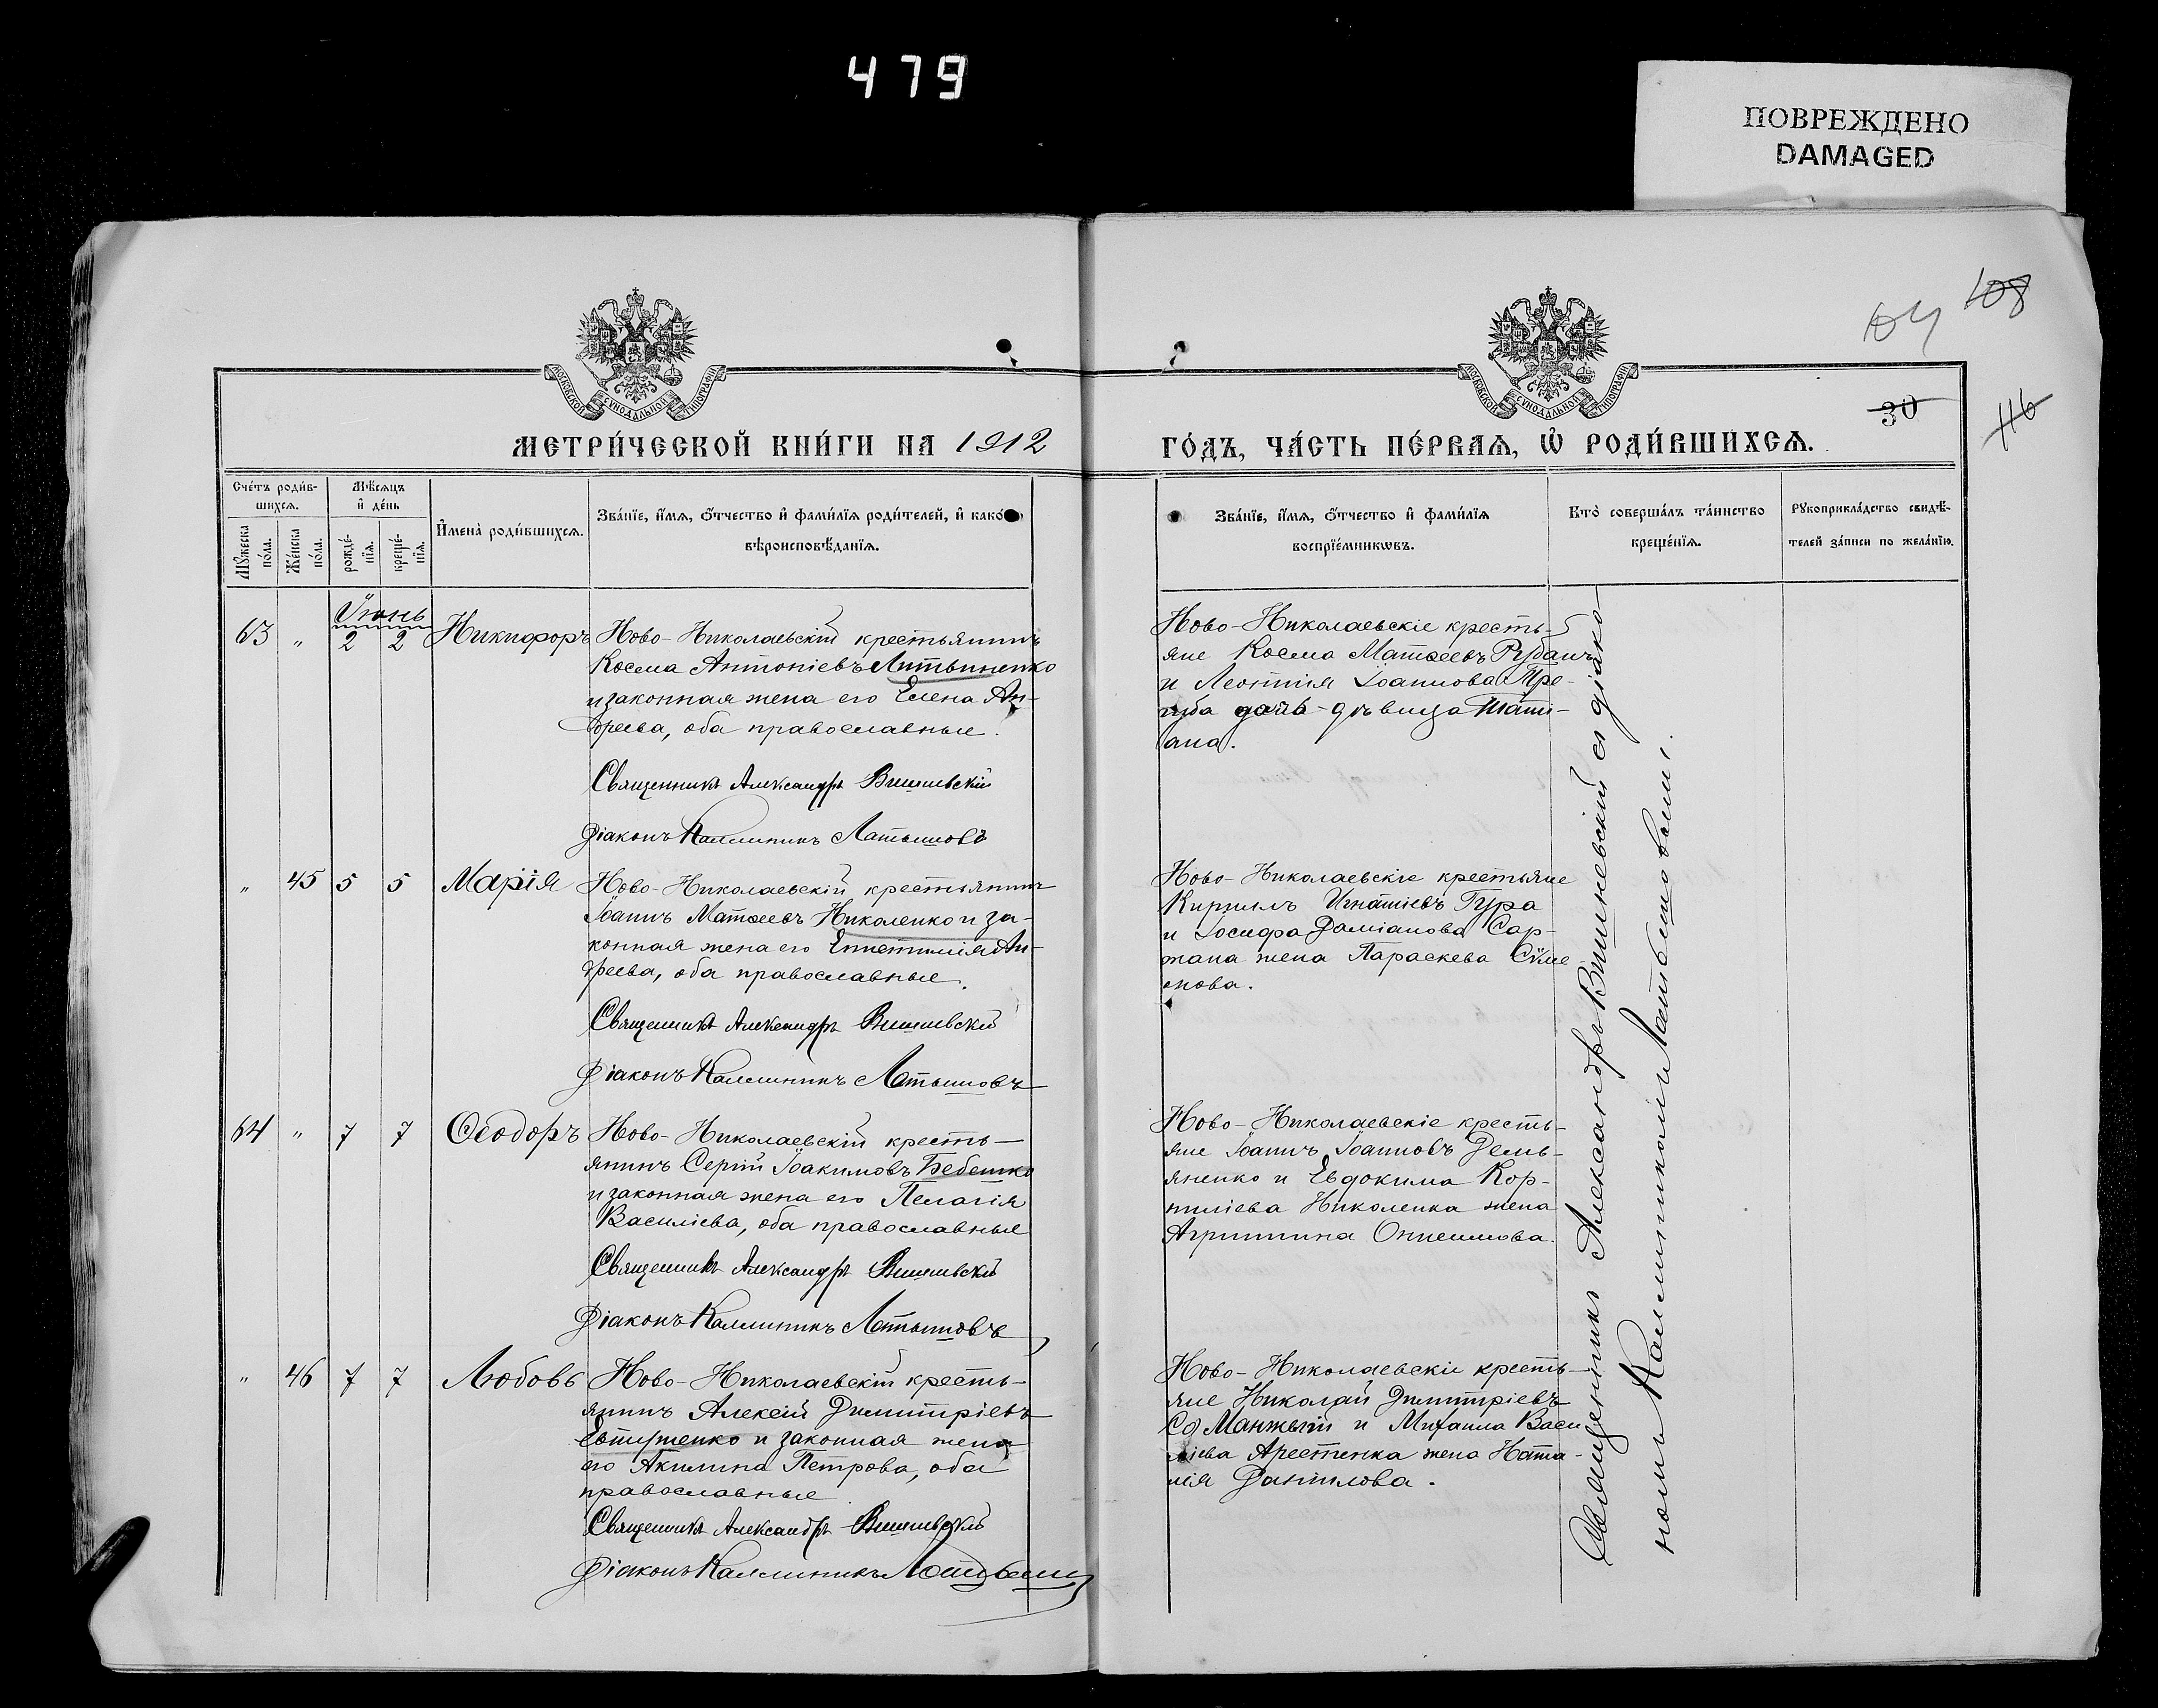 479
ПОВРЕЖДЕНО
DAMAGED
108
104
30
116
МОСКОВСКОЙ СѴНОДАЛЬНОЙ ТИПОГРАФІИ
МОСКОВСКОЙ СѴНОДАЛЬНОЙ ТИПОГРАФІИ
МЕТРИ́ЧЕСКОЙ КНИ́ГИ НА 1912
ГО́ДЪ, ЧА́СТЬ ПЕ́РВАѦ, Ѡ҆ РОДИ́ВШИХСѦ.
Сче́тъ роди́в-
шихсѧ.
Мѣ́сѧцъ
и҆ де́нь
Мꙋ́жеска
по́ла.
Же́нска
по́ла.
рожде́-
нїѧ.
креще́-
нїѧ.
И҆мена̀ роди́вшихсѧ.
Зва́нїе, и҆́мѧ, ѻ҆́тчество и҆ фами́лїѧ роди́телей, и҆ како́
вѣроисповѣ́данїѧ.
Зва́нїе, и҆́мѧ, ѻ҆́тчество и҆ фами́лїѧ
воспрїе́мникѡвъ.
Кто̀ соверша́лъ та́инство
креще́нїѧ.
Рꙋкоприкла́дство свидѣ́-
телей за́писи по жела́нїю.
Іюнь
63 „ 2 2 Никифоръ
Ново-Николаевскій крестьянинъ
Косма Антоніевъ Литвиненко
и законная жена его Елена Ан-
дреева, оба православные.
Священникъ Александръ Вишневскій
Діаконъ Каллиникъ Латышовъ
Ново-Николаевскіе кресть-
яне Косма Матѳеевъ Рубанъ
и Леонтія Іоаннова Тре-
губа дочь-дѣвица Тати-
ана.
„ 45 5 5 Марія
Ново-Николаевскій крестьянинъ
Іоаннъ Матѳеевъ Николенко и за-
конная жена его Епистимія Ан-
дреева, оба православные.
Священникъ Александръ Вишневскій
Діаконъ Каллиникъ Латышовъ
Ново-Николаевскіе крестьяне
Кириллъ Игнатіевъ Гура
и Іосифа Даміанова Сар-
жана жена Параскева Симе-
онова.
64 „ 7 7 Ѳеодоръ
Ново-Николаевскій кресть-
янинъ Сергій Іоакимовъ Бебешко
и законная жена его Пелагія
Василіева, оба православные
Священникъ Александръ Вишневскій
Діаконъ Каллиникъ Латышовъ
Ново-Николаевскіе кресть-
яне Іоаннъ Іоанновъ Демь-
яненко и Евдокима Кор-
ниліева Николенка жена
Агриппина Онисимова.
„ 46 7 7 Любовь
Ново-Николаевскій кресть-
янинъ Алексій Димитріевъ
Евтушенко и законная жена
его Акилина Петрова, оба
православные
Священникъ Александръ Вишневскій
Діаконъ Каллиникъ Латышовъ
Ново-Николаевскіе кресть-
яне Николай Димитріевъ
Манжый и Михаила Васи
ліева Арестенка жена Ната-
лія Даніилова.
Священникъ Александръ Вишневскій съ діако-
номъ Каллиникомъ Латышовымъ.